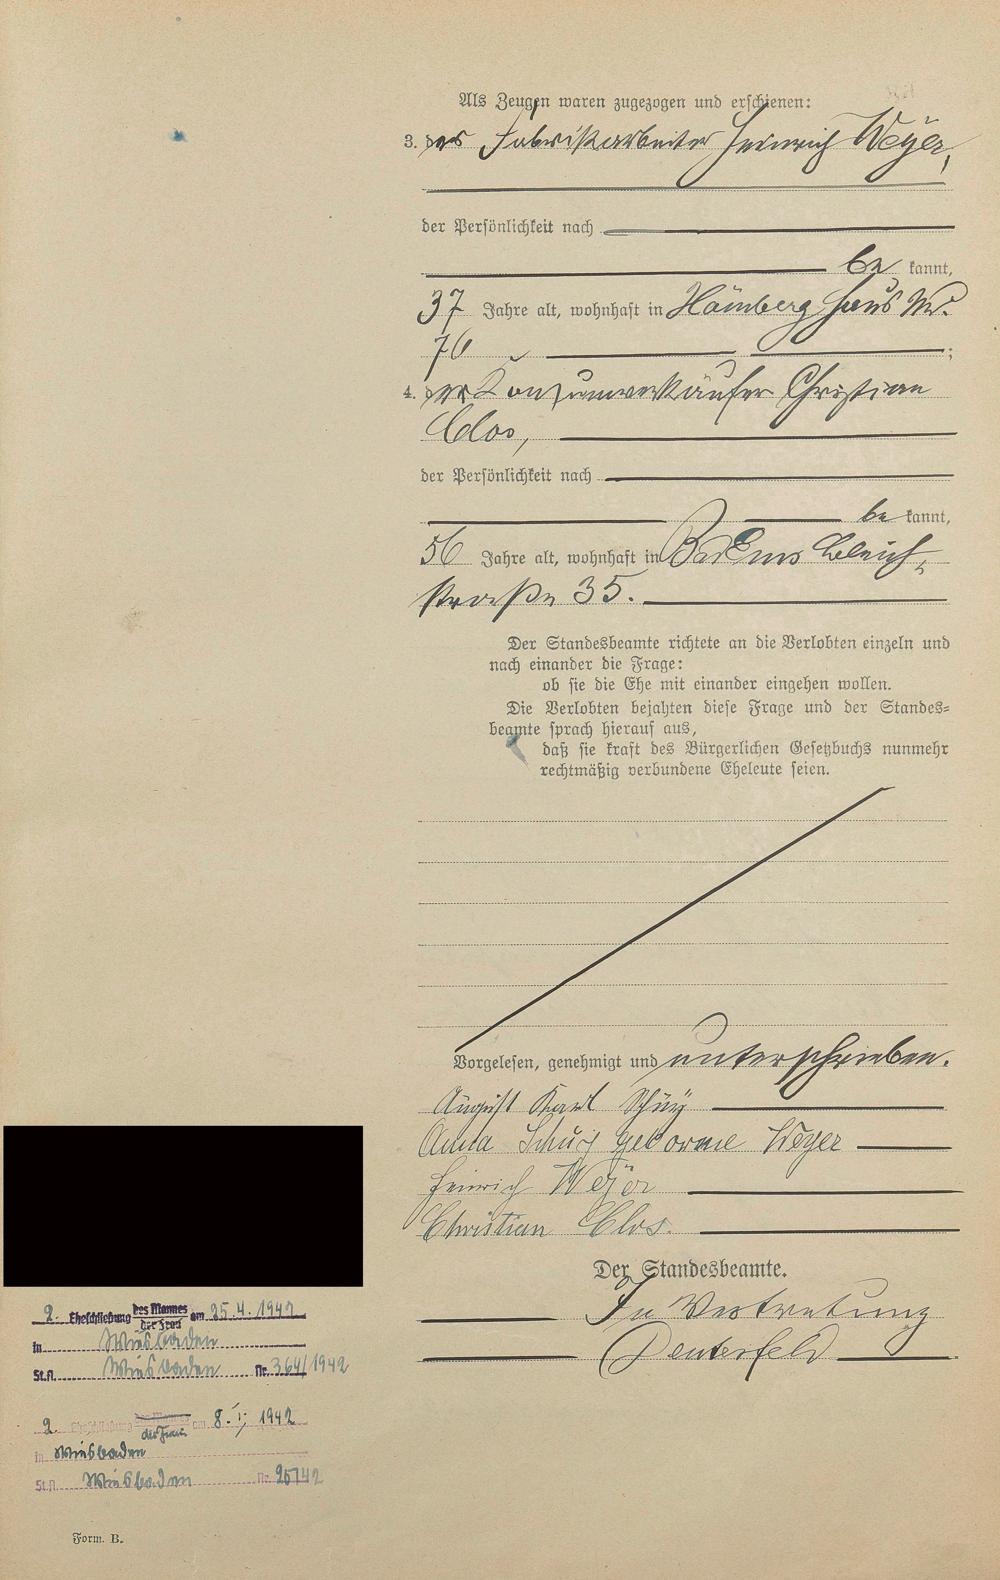 Als Zeugen waren zugezogen und erschienen:
3. der Fabrikarbeiter Heinrich Weyer,
der Persönlichkeit nach
be kannt,
37 Jahre alt, wohnhaft in Hömberg Haus Nr.
76 ;
4. der Konsumverkäufer Christian
Clos,
der Persönlichkeit nach
be kannt,
56 Jahre alt, wohnhaft in Bad Ems Bleich-
straße 35.
Der Standesbeamte richtete an die Verlobten einzeln und
nach einander die Frage:
ob sie die Ehe mit einander eingehen wollen.
Die Verlobten bejahten diese Frage und der Standes-
beamte sprach hierauf aus,
daß sie kraft des Bürgerlichen Gesetzbuchs nunmehr
rechtmäßig verbundene Eheleute seien.
Vorgelesen, genehmigt und unterschrieben.
August Karl Schuy
Anna Schuy geborene Weyer
Heinrich Weyer
Christian Clos.
Der Standesbeamte.
In Vertretung
2. Eheschließung des Mannes am 25.4.1942
der Frau
in Wiesbaden
St.A. Wiesbaden Nr. 364/1942
2. Eheschließung des Mannes am 8. 1942
der Frau
in Wiesbaden
St.A. Wiesbaden Nr.
Form. B.